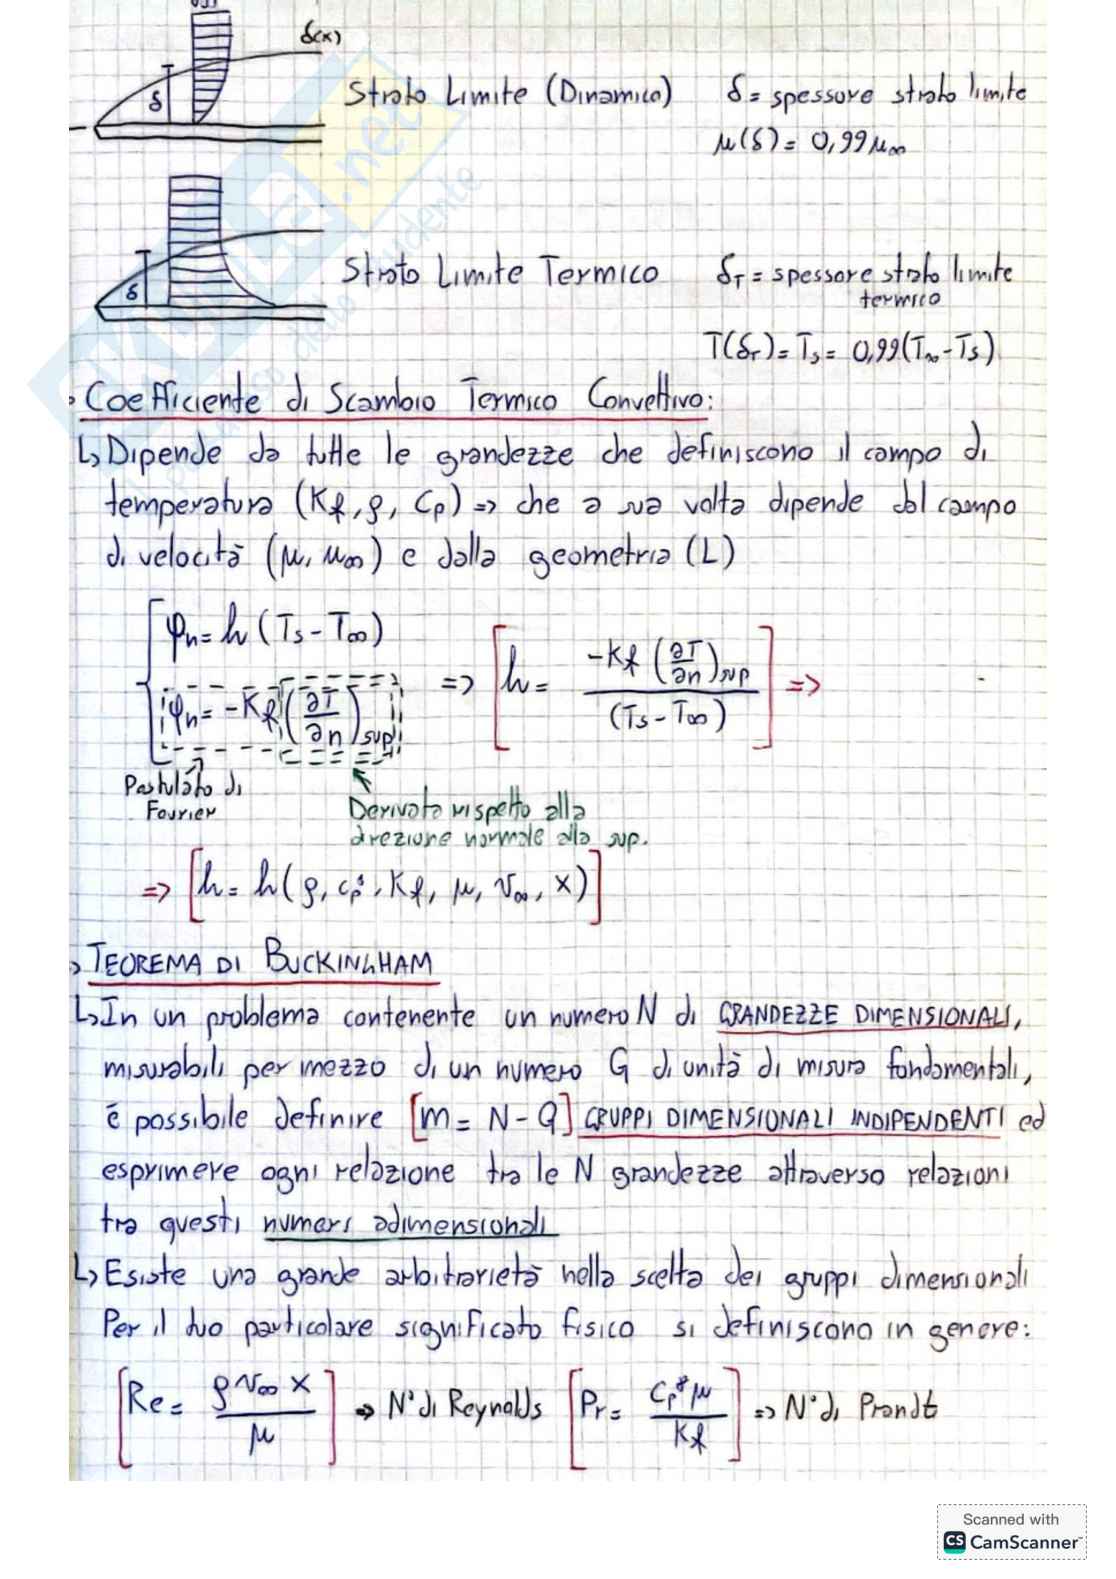 δ(x)
δ
Strato Limite (Dinamico) δ = spessore strato limite
μ(δ) = 0,99 μ∞
δ
Strato Limite Termico δT = spessore strato limite
termico
T(δT) = Ts = 0,99(T∞ - Ts)
Coefficiente di Scambio Termico Convettivo:
↳ Dipende da tutte le grandezze che definiscono il campo di
temperatura (Kf, ρ, Cp) => che a sua volta dipende dal campo
di velocità (μ, μ∞) e dalla geometria (L)
φn = h (Ts - T∞)
φn = -Kf (∂T/∂n)sup => [h = -Kf (∂T/∂n)sup / (Ts - T∞)] =>
Postulato di
Fourier
Derivata rispetto alla
direzione normale alla sup.
=> [h = h(ρ, cp*, Kf, μ, v∞, x)]
TEOREMA DI BUCKINGHAM
↳ In un problema contenente un numero N di GRANDEZZE DIMENSIONALI,
misurabili per mezzo di un numero G di unità di misura fondamentali,
è possibile definire [m = N - G] GRUPPI DIMENSIONALI INDIPENDENTI ed
esprimere ogni relazione tra le N grandezze attraverso relazioni
tra questi numeri adimensionali
↳ Esiste una grande arbitrarietà nella scelta dei gruppi dimensionali
Per il suo particolare significato fisico si definiscono in genere:
[Re = ρ v∞ x / μ] => N° di Reynolds [Pr = Cp* μ / Kf] => N° di Prandt
Scanned with
CS CamScanner